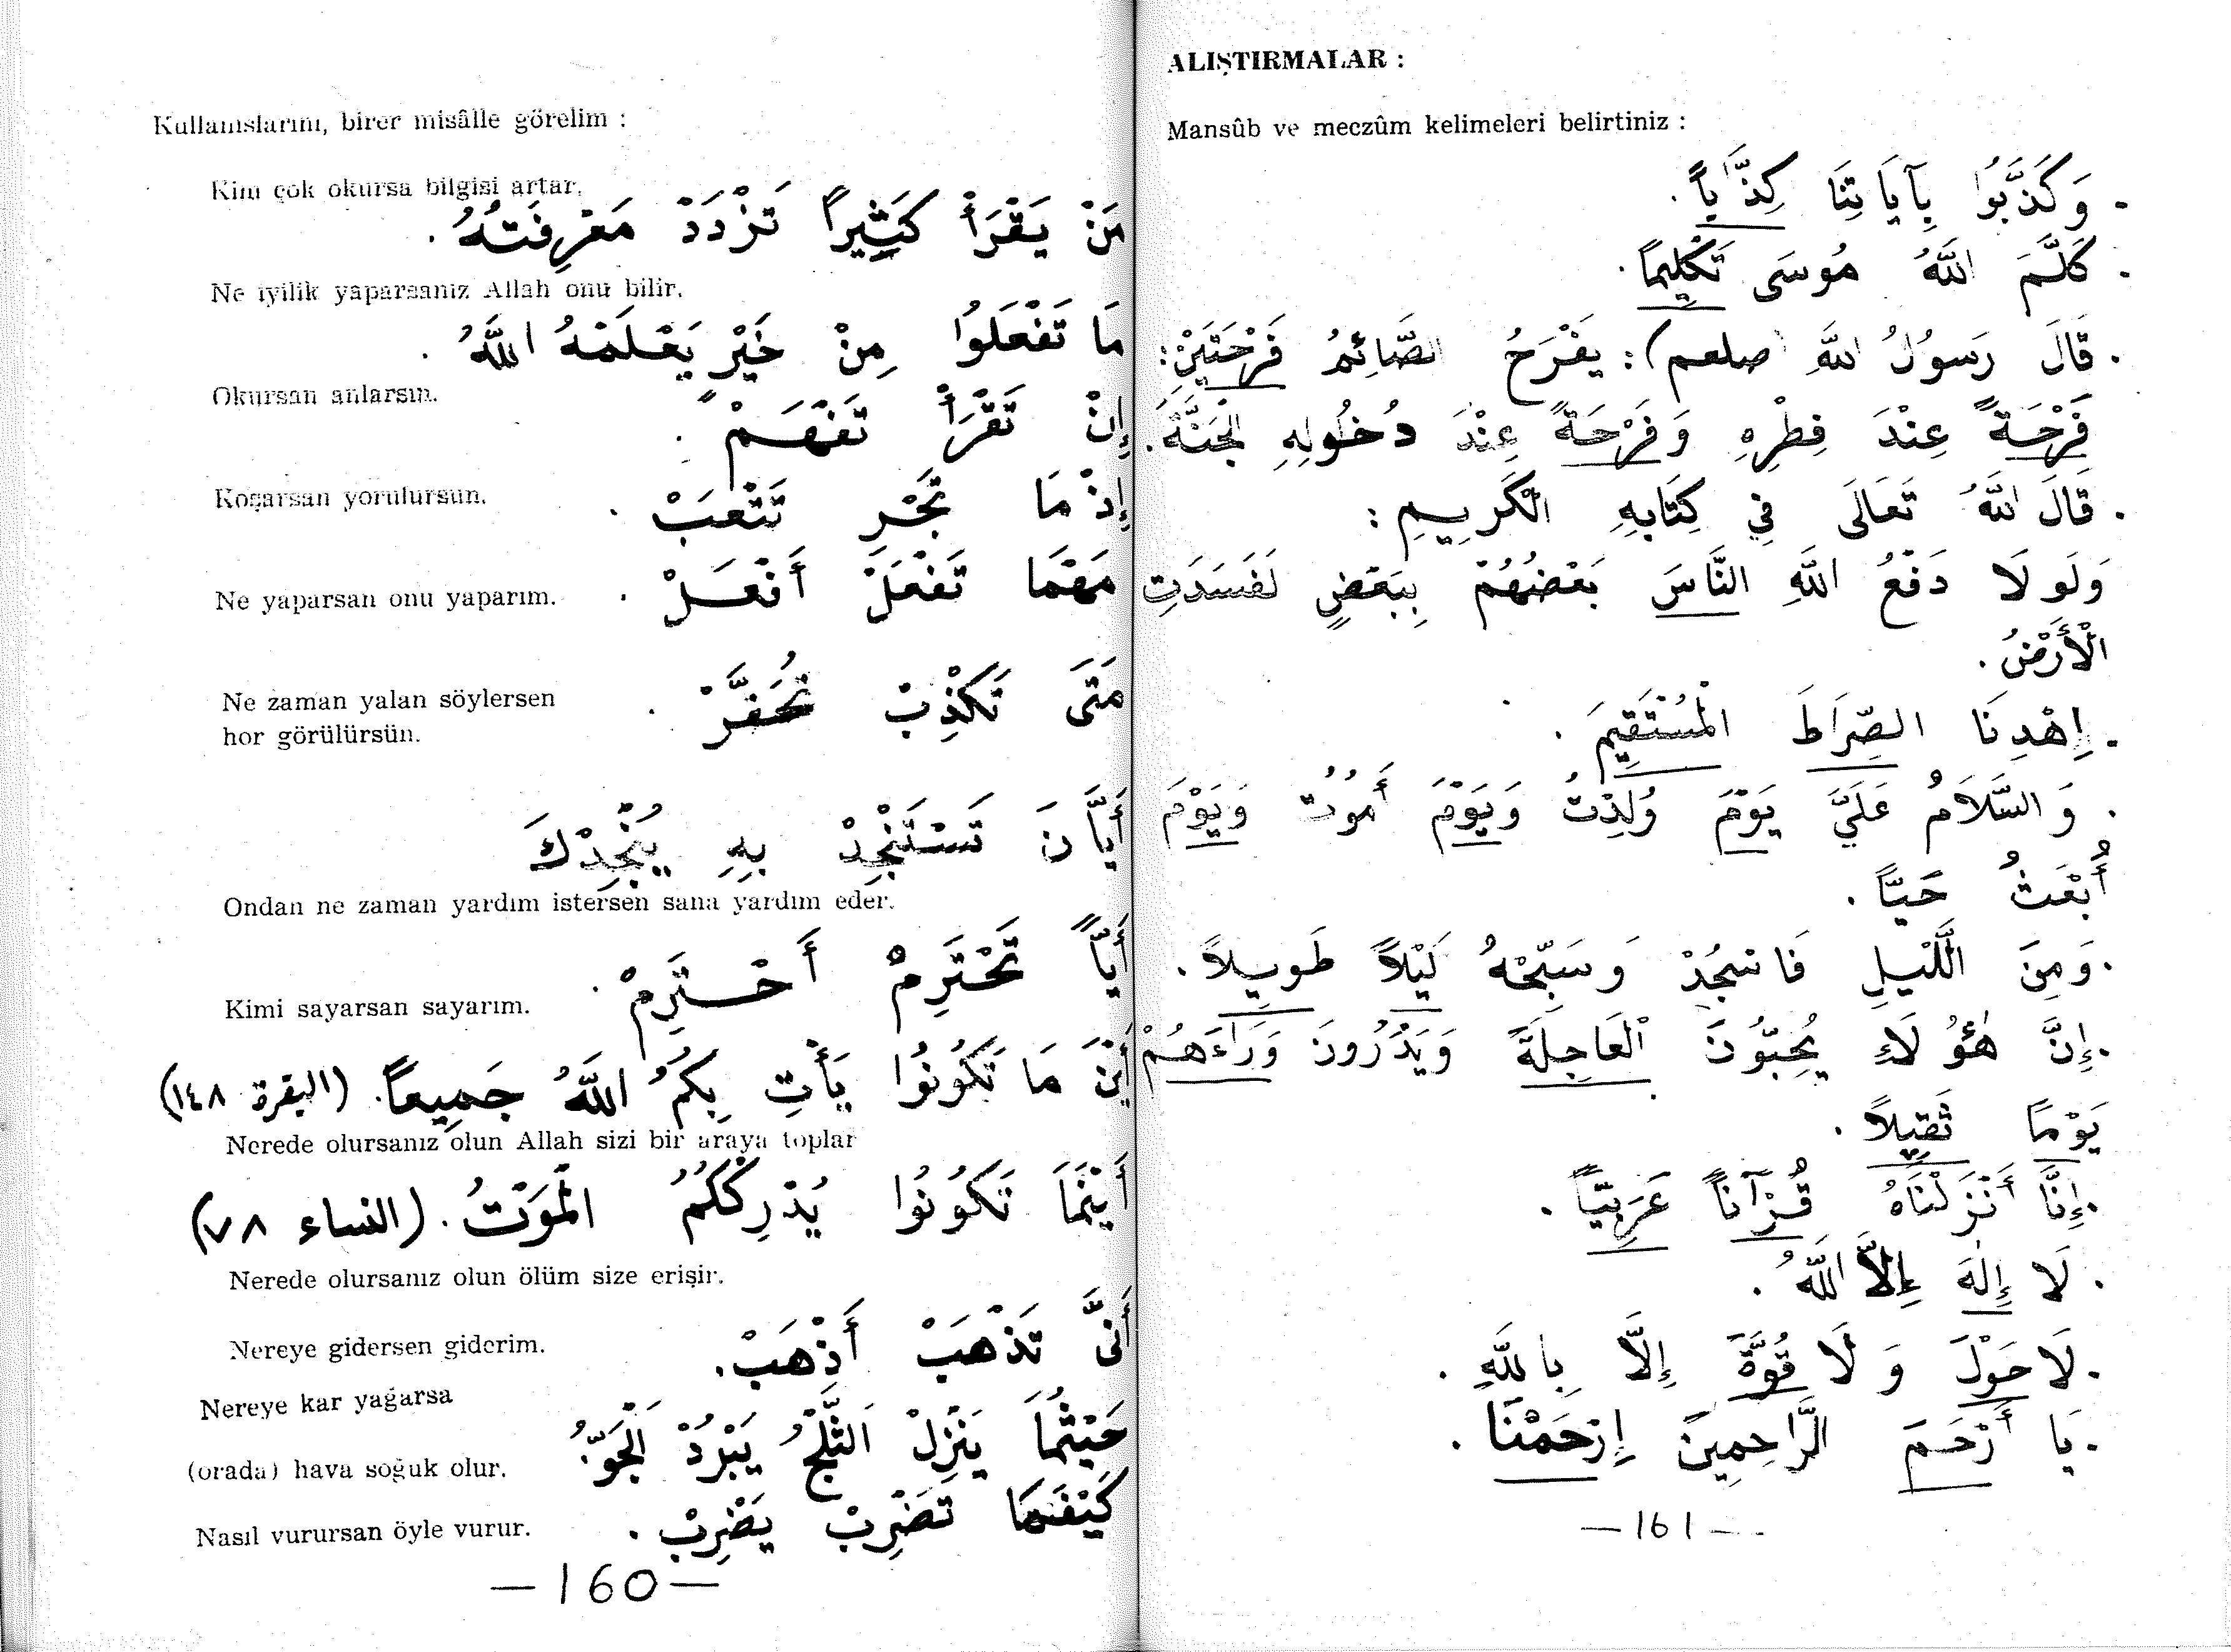 Kullanışlarını, birer misâlle görelim :
Kim çok okursa bilgisi artar.
مَنْ يَقْرَأْ كَثِيراً تَزْدَدْ مَعْرِفَتُهُ .
Ne iyilik yaparsanız Allah onu bilir.
مَا تَفْعَلُوا مِنْ خَيْرٍ يَعْلَمْهُ اللَّهُ .
Okursan anlarsın.
إِنْ تَقْرَأْ تَفْهَمْ .
Koşarsan yorulursun.
إِذْ مَا تَجْرِ تَتْعَبْ .
Ne yaparsan onu yaparım.
مَهْمَا تَفْعَلْ أَفْعَلْ .
Ne zaman yalan söylersen
hor görülürsün.
مَتَى تَكْذِبْ تُحَقَّرْ .
أَيَّانَ تَسْتَنْجِدْ بِهِ يُنْجِدْكَ
Ondan ne zaman yardım istersen sana yardım eder.
أَيّاً تَحْتَرِمْ أَحْتَرِمْ .
Kimi sayarsan sayarım.
أَيْنَ مَا تَكُونُوا يَأْتِ بِكُمُ اللَّهُ جَمِيعاً. (البقرة ١٤٨)
Nerede olursanız olun Allah sizi bir araya toplar
أَيْنَمَا تَكُونُوا يُدْرِكْكُمُ الْمَوْتُ. (النساء ٧٨)
Nerede olursanız olun ölüm size erişir.
Nereye gidersen giderim.
أَنَّى تَذْهَبْ أَذْهَبْ.
Nereye kar yağarsa
(orada) hava soğuk olur.
حَيْثُمَا يَنْزِلْ الثَّلْجُ يَبْرُدْ الْجَوُّ.
Nasıl vurursan öyle vurur.
كَيْفَمَا تَضْرِبْ يَضْرِبْ .
—160—
ALIŞTIRMALAR :
Mansûb ve meczûm kelimeleri belirtiniz :
. وَكَذَّبُوا بِآيَاتِنَا كِذَّاباً.
. كَلَّمَ اللَّهُ مُوسَى تَكْلِيماً.
. قَالَ رَسُولُ اللَّهِ (صلعم): يَفْرَحُ الصَّائِمُ فَرْحَتَيْنِ:
فَرْحَةً عِنْدَ فِطْرِهِ وَفَرْحَةً عِنْدَ دُخُولِهِ الْجَنَّةَ.
. قَالَ اللَّهُ تَعَالَى فِي كِتَابِهِ الْكَرِيمِ :
وَلَوْ لَا دَفْعُ اللَّهِ النَّاسَ بَعْضُهُمْ بِبَعْضٍ لَفَسَدَتِ
الْأَرْضُ .
. اِهْدِنَا الصِّرَاطَ الْمُسْتَقِيمَ .
. وَالسَّلَامُ عَلَيَّ يَوْمَ وُلِدْتُ وَيَوْمَ أَمُوتُ وَيَوْمَ
أُبْعَثُ حَيّاً .
. وَمِنَ اللَّيْلِ فَاسْجُدْ وَسَبِّحْهُ لَيْلاً طَوِيلاً .
. إِنَّ هٰؤُلَاءِ يُحِبُّونَ الْعَاجِلَةَ وَيَذَرُونَ وَرَاءَهُمْ
يَوْمًا ثَقِيلاً .
. إِنَّا أَنْزَلْنَاهُ قُرْآناً عَرَبِيّاً .
. لَا إِلٰهَ إِلاَّ اللَّهُ .
. لَا حَوْلَ وَ لَا قُوَّةَ إِلَّا بِاللَّهِ .
. يَا أَرْحَمَ الرَّاحِمِينَ إِرْحَمْنَا .
—161—